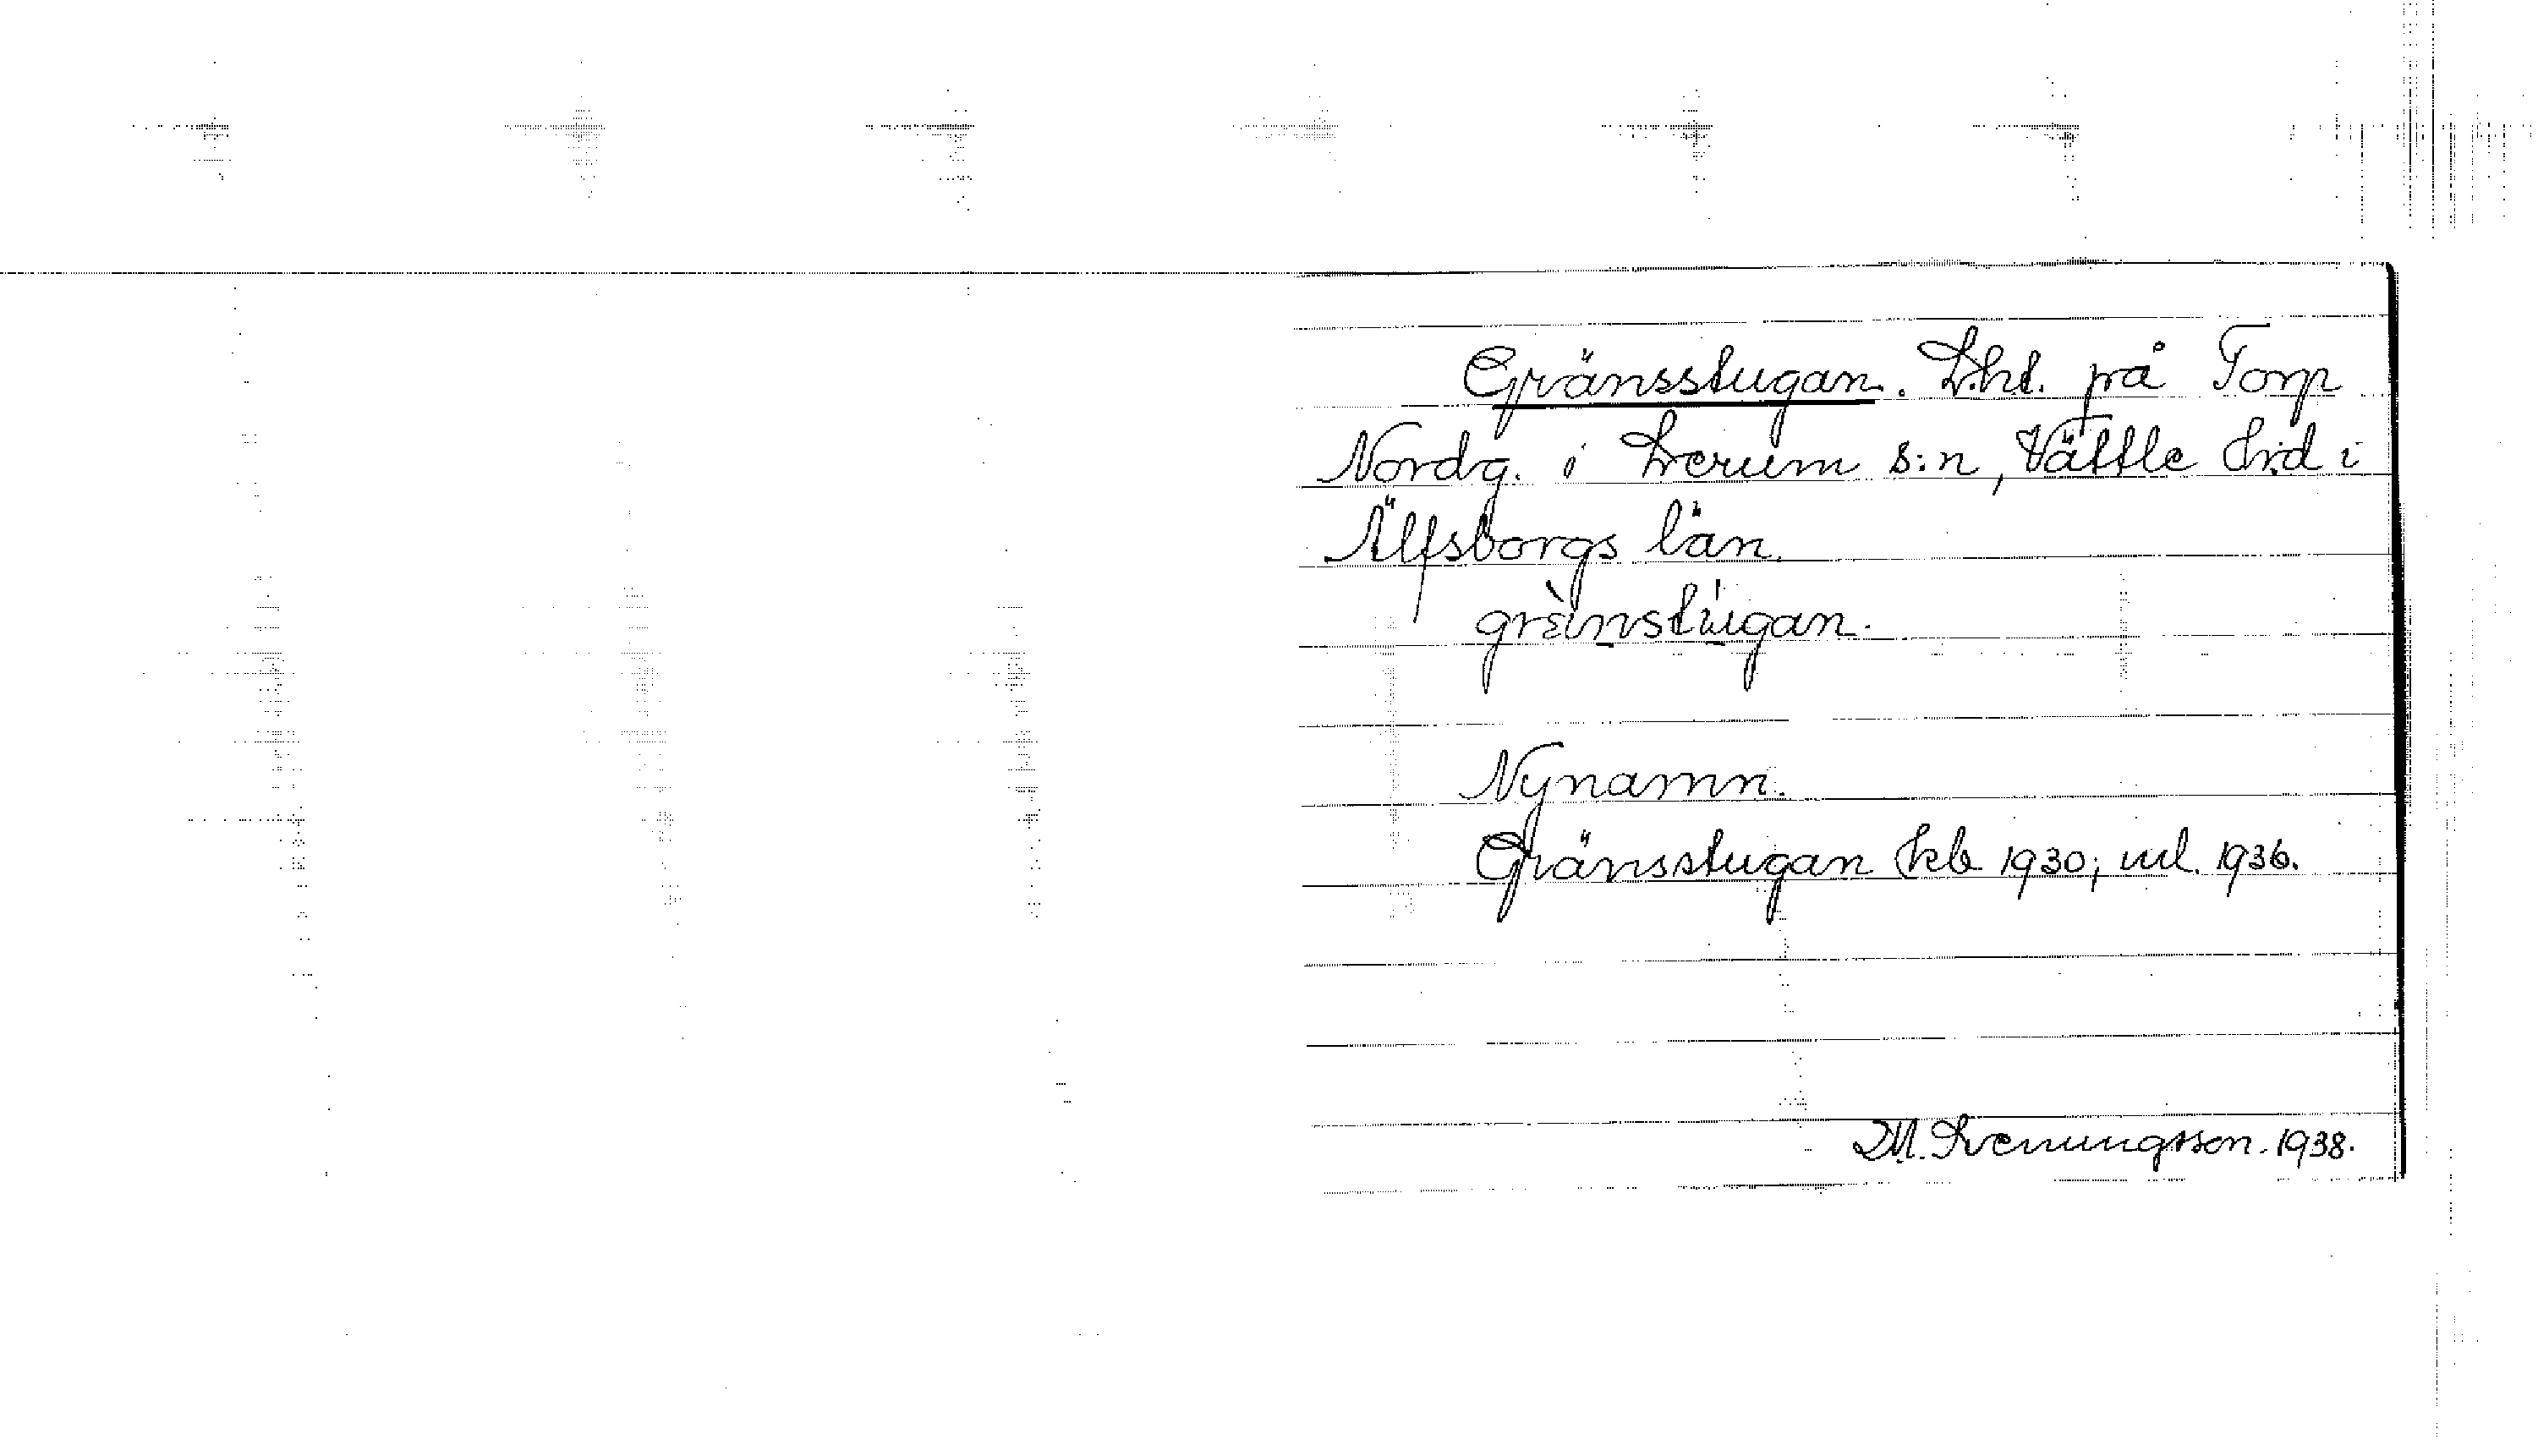 Gränsstugan. Lht. på Torp
Nordg. i Lerum s:n, Vättle hd i
Älfsborgs län.
grènstugan.
Nynamn.
Gränsstugan kb 1930; utl. 1936.
M. Kvenungsson. 1938.